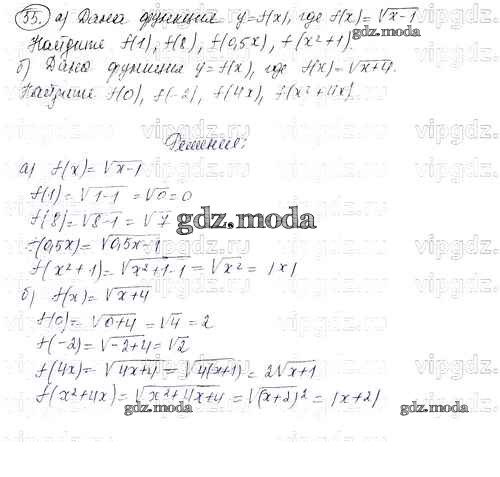 55. а) Дана функция y=f(x), где f(x)=√x-1
Найдите f(1), f(8), f(0,5x), f(x²+1).
б) Дана функция y=f(x), где f(x)=√x+4.
Найдите f(0), f(-2), f(4x), f(x²+4x)
Решение:
а) f(x)=√x-1
f(1)=√1-1=√0=0
f(8)=√8-1=√7
f(0,5x)=√0,5x-1
f(x²+1)=√x²+1-1=√x²=|x|
б) f(x)=√x+4
f(0)=√0+4=√4=2
f(-2)=√-2+4=√2
f(4x)=√4x+4=√4(x+1)=2√x+1
f(x²+4x)=√x²+4x+4=√(x+2)²=|x+2|
gdz.moda
gdz.moda
gdz.moda
gdz.moda
gdz.moda
vipgdz